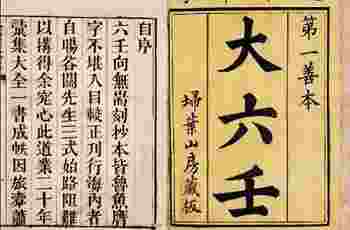 第一善本
大六壬
埽葉山房藏板
自序
六壬向無耑刻抄本皆魯魚贋
字不堪入目較正刊行海內者
自暘谷關先生三式始路阻難
以搆得余究心此道業二十年
彙集大全一書成帙因旅